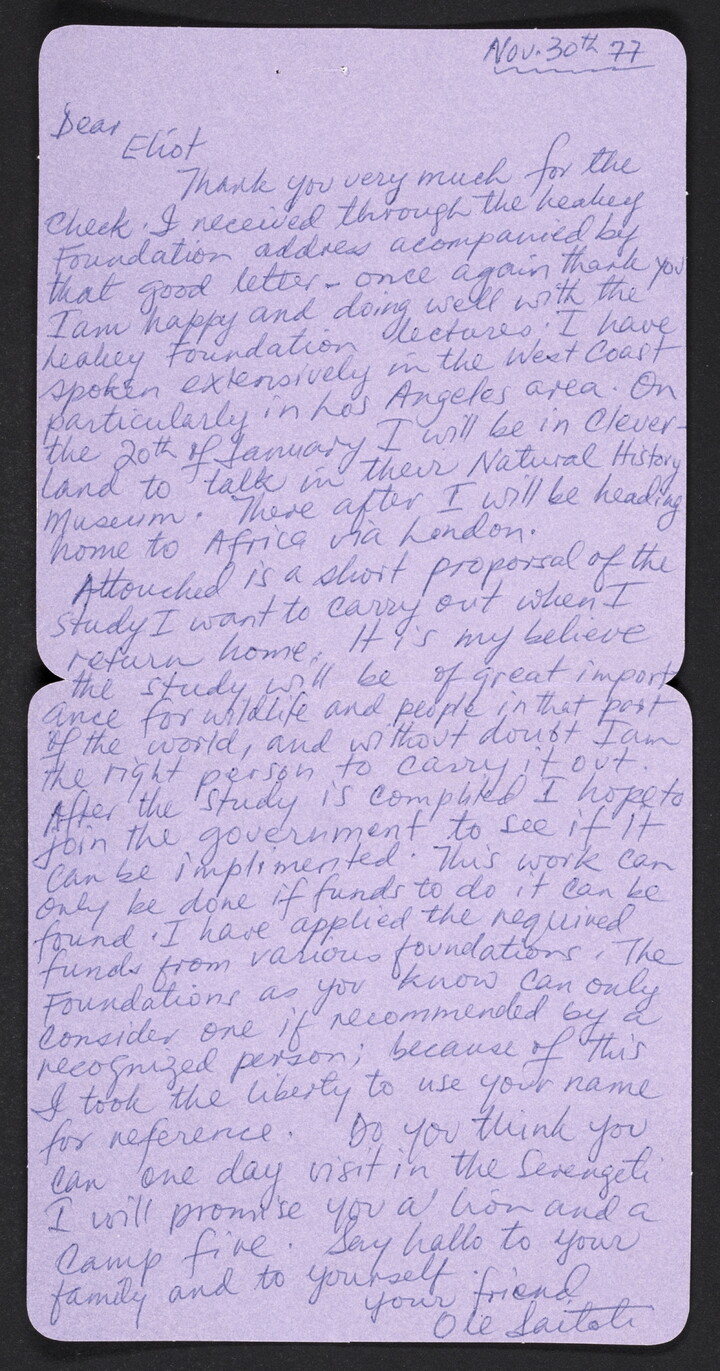 Nov. 30th 77
Dear
Eliot
Thank you very much for the
check. I received through the leakey
Foundation address acompanied by
that good letter - once again thank you
I am happy and doing well with the
leakey Foundation lectures. I have
spoken extensively in the West Coast
particularly in Los Angeles area. On
the 20th of January I will be in Clever-
land to talk in their Natural History
Museum. There after I will be heading
home to Africa via London.
Attouched is a short proporsal of the
study I want to carry out when I
return home. It is my believe
the study will be of great import
ance for wildlife and people in that part
of the world, and without doubt I am
the right person to carry it out.
After the study is complited I hope to
join the government to see if it
can be implimented. This work can
only be done if funds to do it can be
found. I have applied the required
funds from various foundations. The
Foundations as you know can only
consider one if recommended by a
recognized person; because of this
I took the liberty to use your name
for reference. Do you think you
can one day visit in the Serengeti
I will promise you a lion and a
camp fire. Say hallo to your
family and to yourself.
your friend
Ole Saitoti